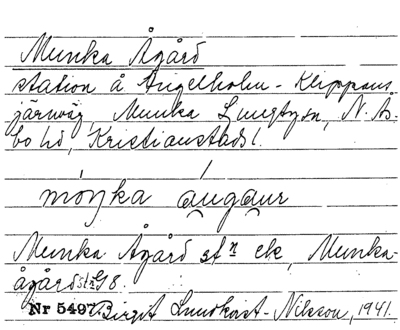 Munka Ågård
station å Ängelholm - Klippans
järnväg, Munka Ljungby sn, N. Ås-
bo hd, Kristianstads l.
móŋka au̯gau̯r
Munka Ågård stn ek, Munka-
ågård G8.
Nr 5497 Birgit Lundkvist-Nilsson, 1941.